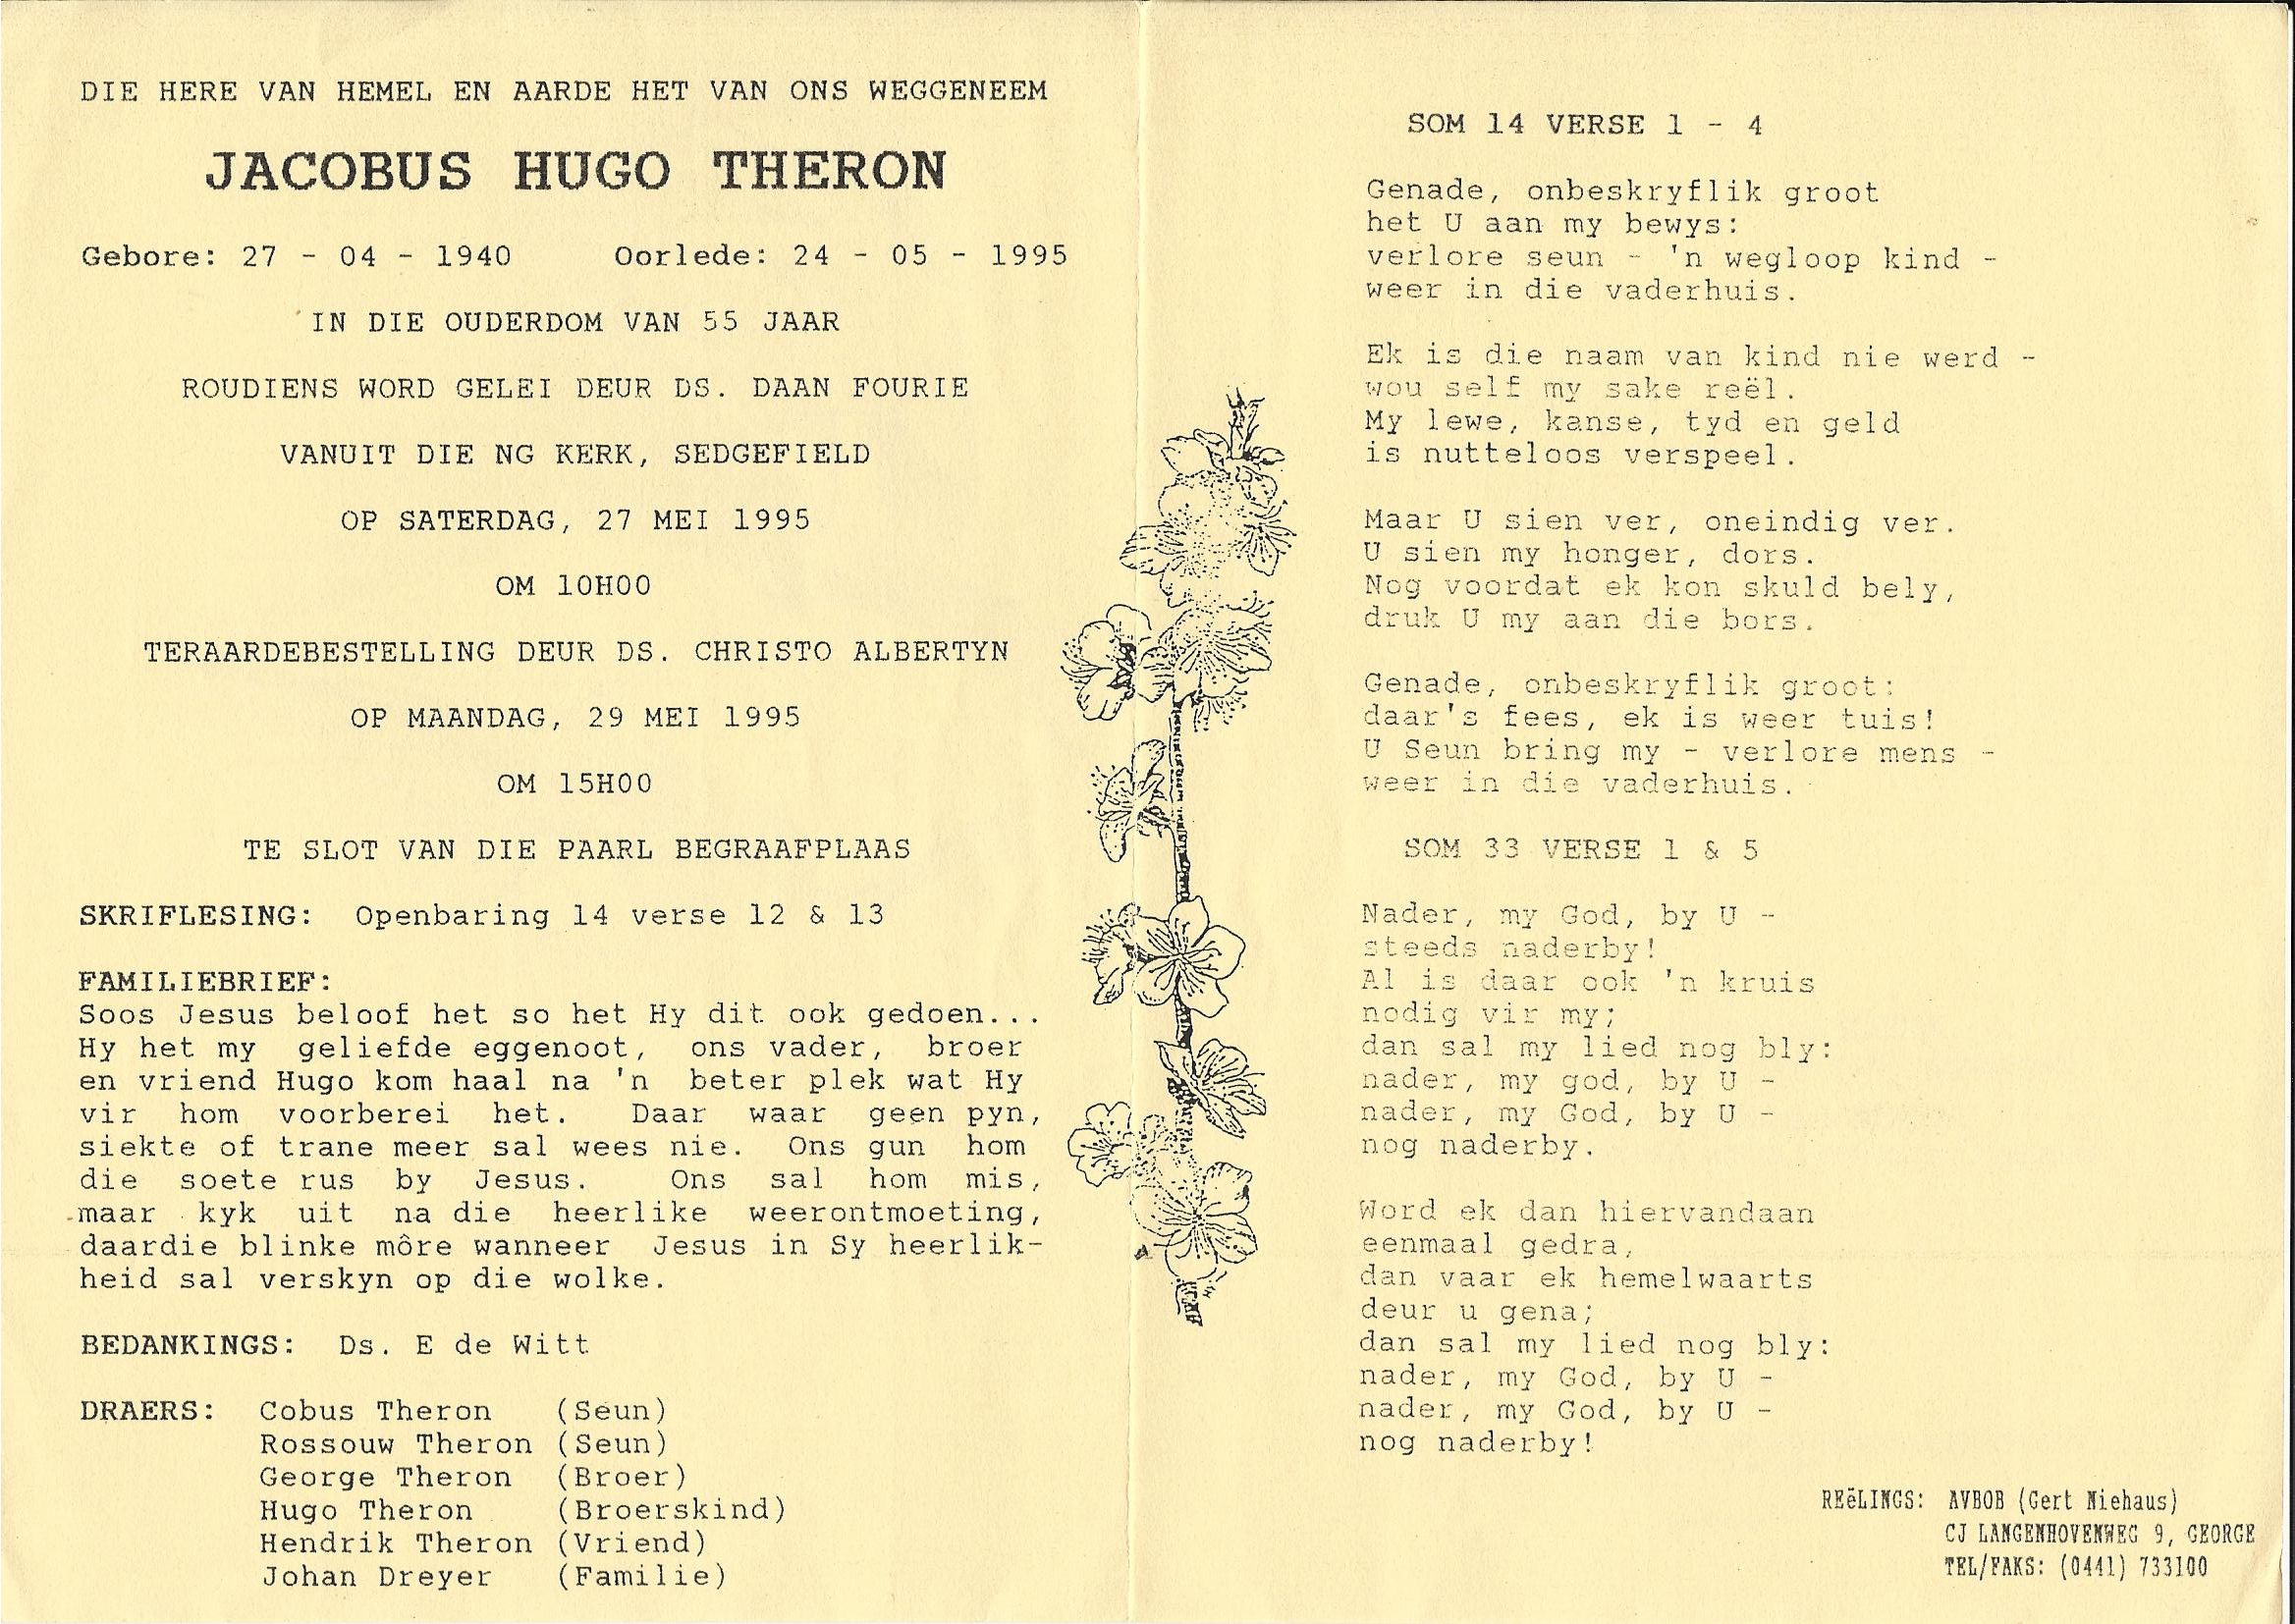 DIE HERE VAN HEMEL EN AARDE HET VAN ONS WEGGENEEM
JACOBUS HUGO THERON
Gebore: 27 - 04 - 1940 Oorlede: 24 - 05 - 1995
IN DIE OUDERDOM VAN 55 JAAR
ROUDIENS WORD GELEI DEUR DS. DAAN FOURIE
VANUIT DIE NG KERK, SEDGEFIELD
OP SATERDAG, 27 MEI 1995
OM 10H00
TERAARDEBESTELLING DEUR DS. CHRISTO ALBERTYN
OP MAANDAG, 29 MEI 1995
OM 15H00
TE SLOT VAN DIE PAARL BEGRAAFPLAAS
SKRIFLESING: Openbaring 14 verse 12 & 13
FAMILIEBRIEF:
Soos Jesus beloof het so het Hy dit ook gedoen...
Hy het my geliefde eggenoot, ons vader, broer
en vriend Hugo kom haal na 'n beter plek wat Hy
vir hom voorberei het. Daar waar geen pyn,
siekte of trane meer sal wees nie. Ons gun hom
die soete rus by Jesus. Ons sal hom mis,
maar kyk uit na die heerlike weerontmoeting,
daardie blinke môre wanneer Jesus in Sy heerlik-
heid sal verskyn op die wolke.
BEDANKINGS: Ds. E de Witt
DRAERS: Cobus Theron (Seun)
Rossouw Theron (Seun)
George Theron (Broer)
Hugo Theron (Broerskind)
Hendrik Theron (Vriend)
Johan Dreyer (Familie)
SOM 14 VERSE 1 - 4
Genade, onbeskryflik groot
het U aan my bewys:
verlore seun - 'n wegloop kind -
weer in die vaderhuis.
Ek is die naam van kind nie werd -
wou self my sake reël.
My lewe, kanse, tyd en geld
is nutteloos verspeel.
Maar U sien ver, oneindig ver.
U sien my honger, dors.
Nog voordat ek kon skuld bely,
druk U my aan die bors.
Genade, onbeskryflik groot:
daar's fees, ek is weer tuis!
U Seun bring my - verlore mens -
weer in die vaderhuis.
SOM 33 VERSE 1 & 5
Nader, my God, by U -
steeds naderby!
Al is daar ook 'n kruis
nodig vir my;
dan sal my lied nog bly:
nader, my god, by U -
nader, my God, by U -
nog naderby.
Word ek dan hiervandaan
eenmaal gedra,
dan vaar ek hemelwaarts
deur u gena;
dan sal my lied nog bly:
nader, my God, by U -
nader, my God, by U -
nog naderby!
REëLINGS: AVBOB (Gert Niehaus)
CJ LANGENHOVENWEG 9, GEORGE
TEL/FAKS: (0441) 733100